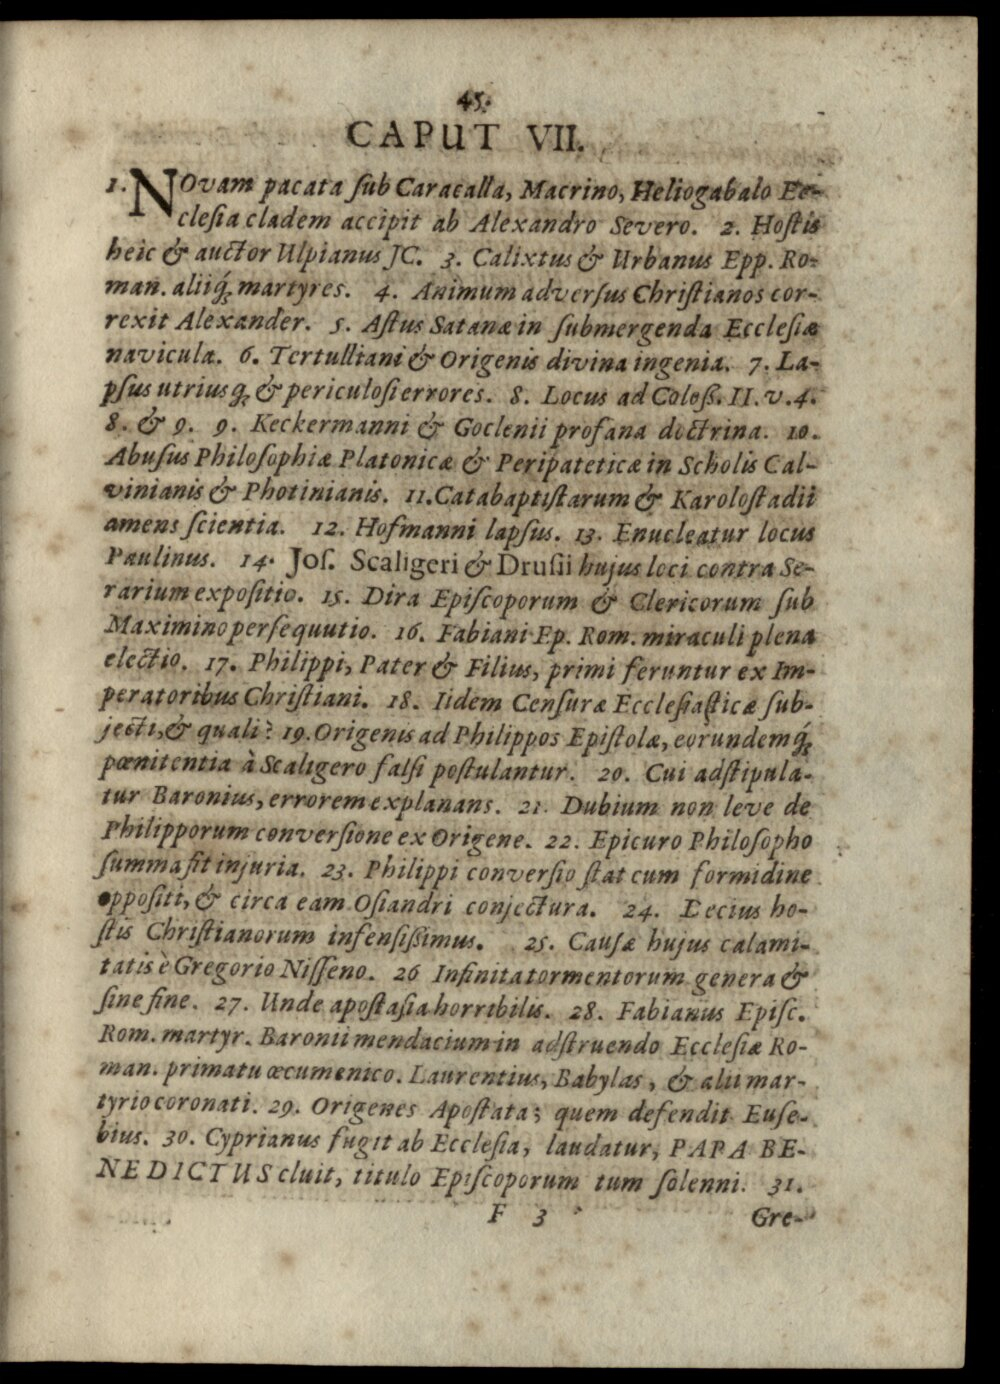 45.
CAPUT VII.
1. NOvam pacata ſub Caracalla, Macrino, Heliogabalo Ec-
cleſia cladem accipit ab Alexandro Severo. 2. Hoſtis
heic & auctor Ulpianus JC. 3. Calixtus & Urbanus Epp. Ro-
man. aliiq́; martyres. 4. Animum adverſus Chriſtianos cor-
rexit Alexander. 5. Aſtus Satanæ in ſubmergenda Eccleſiæ
navicula. 6. Tertulliani & Origenis divina ingenia. 7. La-
pſus utriusq; & periculoſi errores. 8. Locus ad Coloß. II. v. 4.
8. & 9. 9. Keckermanni & Goclenii profana doctrina. 10.
Abuſus Philoſophiæ Platonicæ & Peripateticæ in Scholis Cal-
vinianis & Photinianis. 11. Catabaptiſtarum & Karoloſtadii
amens ſcientia. 12. Hofmanni lapſus. 13. Enucleatur locus
Paulinus. 14. Joſ. Scaligeri & Druſii hujus loci contra Se-
rarium expoſitio. 15. Dira Epiſcoporum & Clericorum ſub
Maximino perſequutio. 16. Fabiani Ep. Rom. miraculi plena
electio. 17. Philippi, Pater & Filius, primi feruntur ex Im-
peratoribus Chriſtiani. 18. Iidem Cenſuræ Eccleſiaſticæ ſub-
jecti, & quali? 19. Origenis ad Philippos Epiſtolæ, eorundemq́;
pœnitentia à Scaligero falſi poſtulantur. 20. Cui adſtipula-
tur Baronius, errorem explanans. 21. Dubium non leve de
Philipporum converſione ex Origene. 22. Epicuro Philoſopho
ſumma fit injuria. 23. Philippi converſio ſtat cum formidine
oppoſiti, & circa eam Oſiandri conjectura. 24. Decius ho-
ſtis Chriſtianorum infenſißimus. 25. Cauſæ hujus calami-
tatis è Gregorio Niſſeno. 26 Infinita tormentorum genera &
ſine fine. 27. Unde apoſtaſia horribilis. 28. Fabianus Epiſc.
Rom. martyr. Baronii mendacium in adſtruendo Eccleſiæ Ro-
man. primatu œcumenico. Laurentius, Babylas, & alii mar-
tyrio coronati. 29. Origenes Apoſtata; quem defendit Euſe-
bius. 30. Cyprianus fugit ab Eccleſia, laudatur, PAPA BE-
NEDICTUS cluit, titulo Epiſcoporum tum ſolenni. 31.
F 3 Gre-